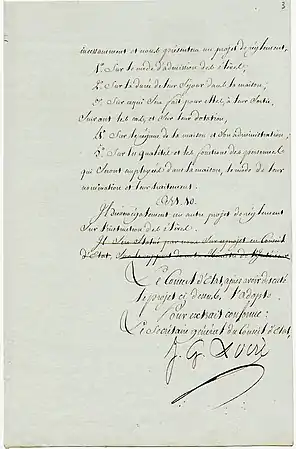 3
incessamment et nous présentera un projet de règlement,
1.° Sur le mode d'admission des élèves;
2.° Sur la durée de leur séjour dans la maison;
3.° Sur ce qui sera fait pour elles, à leur sortie,
suivant les cas, et sur leur dotation,
4.° Sur le régime de la maison et son administration;
5.° Sur les qualités et les fonctions des personnes
qui seront employées dans la maison, le mode de leur
nomination et leur traitement.
Art. 10.
Il discutera également un autre projet de règlement
sur l'instruction des élèves.
Il sera statué par nous sur ce projet en Conseil
d'Etat,
Le Conseil d'Etat, après avoir discuté
le projet ci dessus, l'adopte.
Pour extrait conforme:
Le Secrétaire général du Conseil d'Etat,
J. G. Locré